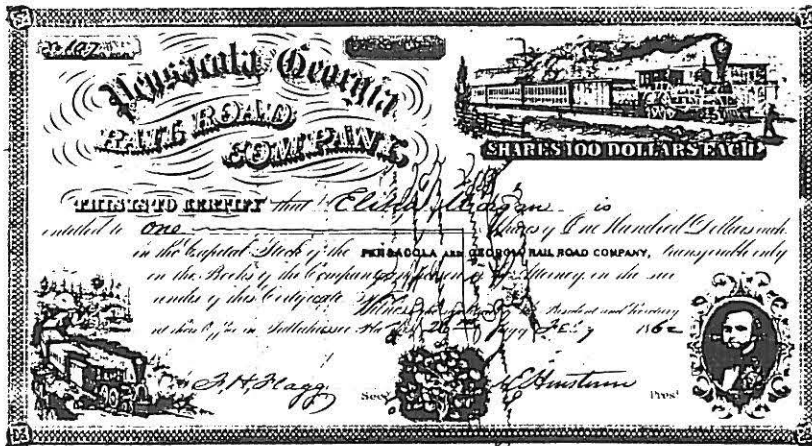 No 107
Pensacola Georgia
RAIL ROAD
COMPANY
SHARES 100 DOLLARS EACH
THIS IS TO CERTIFY that is
entitled to one Shares of One Hundred Dollars each
in the Capital Stock of the PENSACOLA AND GEORGIA RAIL ROAD COMPANY, transferable only
on the Books of the Company in person or by Attorney on the sur
render of this Certificate
Witness the President and Secretary
at their Office in Tallahassee Fla 1862
F. H. Flagg Secy
Prest